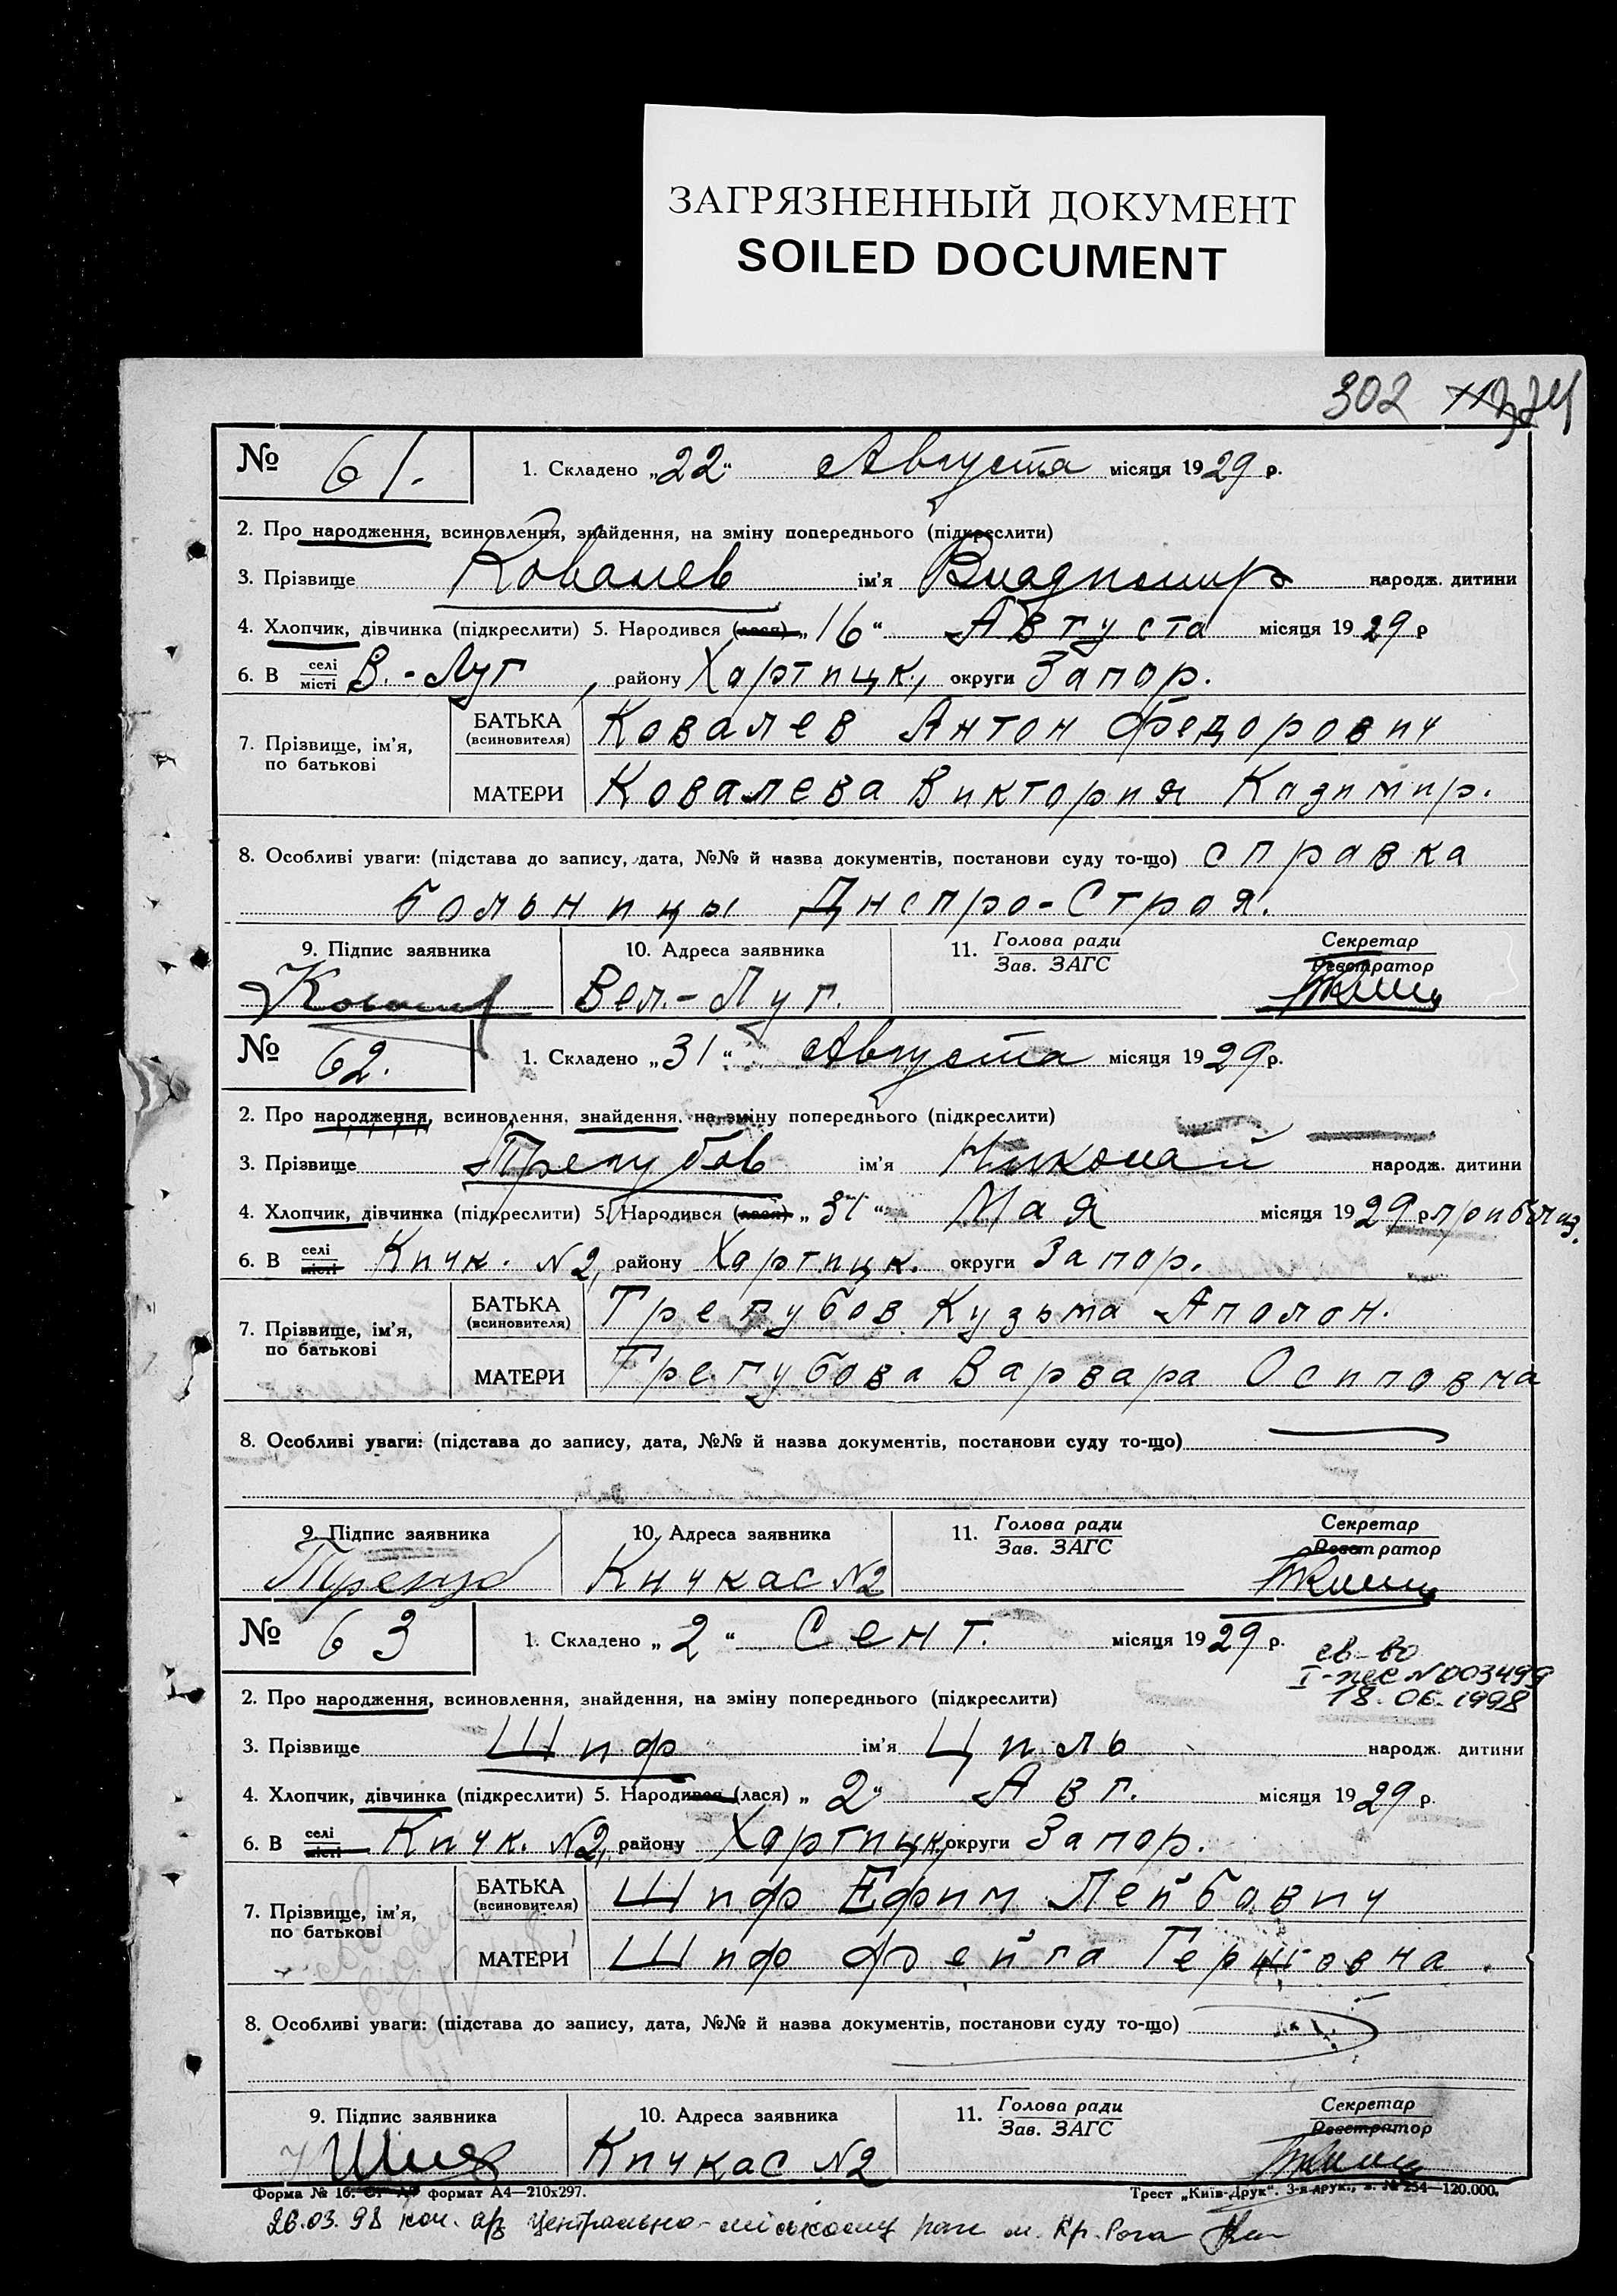 ЗАГРЯЗНЕННЫЙ ДОКУМЕНТ
SOILED DOCUMENT
302
№ 61. 1. Складено „22“ Августа місяця 1929 р.
2. Про народження, всиновлення, знайдення, на зміну попереднього (підкреслити)
3. Прізвище Ковалев ім'я Владимир народж. дитини
4. Хлопчик, дівчинка (підкреслити) 5. Народився (лася) „16“ Августа місяця 1929 р
6. В селі/місті В.-Луг, району Хортицк., округи Запор.
7. Прізвище, ім'я, по батькові
БАТЬКА (всиновителя) Ковалев Антон Федорович
МАТЕРИ Ковалева Виктория Казимир.
8. Особливі уваги: (підстава до запису, дата, №№ й назва документів, постанови суду то-що) справка
больницы Днепро-Строя.
9. Підпис заявника 10. Адреса заявника 11. Голова ради/Зав. ЗАГС Секретар/Реєстратор
Ковалев Вел.-Луг.
№ 62. 1. Складено „31“ Августа місяця 1929 р.
2. Про народження, всиновлення, знайдення, на зміну попереднього (підкреслити)
3. Прізвище Трегубов ім'я Николай народж. дитини
4. Хлопчик, дівчинка (підкреслити) 5. Народився (лася) „31“ Мая місяця 1929 р приблиз.
6. В селі/місті Кичк. N2, району Хортицк. округи Запор.
7. Прізвище, ім'я, по батькові
БАТЬКА (всиновителя) Трегубов Кузьма Аполон.
МАТЕРИ Трегубова Варвара Осиповна
8. Особливі уваги: (підстава до запису, дата, №№ й назва документів, постанови суду то-що)
9. Підпис заявника 10. Адреса заявника 11. Голова ради/Зав. ЗАГС Секретар/Реєстратор
Трегуб Кичкас N2
№ 63 1. Складено „2“ Сент. місяця 1929 р.
св-во
I-пес N003499
18.06.1998
2. Про народження, всиновлення, знайдення, на зміну попереднього (підкреслити)
3. Прізвище Шиф ім'я Циль народж. дитини
4. Хлопчик, дівчинка (підкреслити) 5. Народився (лася) „2“ Авг. місяця 1929 р.
6. В селі/місті Кичк. N2, району Хортицк, округи Запор.
7. Прізвище, ім'я, по батькові
БАТЬКА (всиновителя) Шиф Ефим Лейбович
МАТЕРИ Шиф Фейга Герцовна.
8. Особливі уваги: (підстава до запису, дата, №№ й назва документів, постанови суду то-що)
9. Підпис заявника 10. Адреса заявника 11. Голова ради/Зав. ЗАГС Секретар/Реєстратор
Кичкас N2
Форма № 16. формат А4—210х297. Трест „Київ-Друк“. 3-я друк., з. № 254—120.000.
26.03.98 центрально-міському м. Кр. Рога